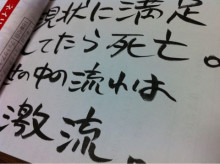 現状に満足
してたら死亡。
世の中の流れは
激流。